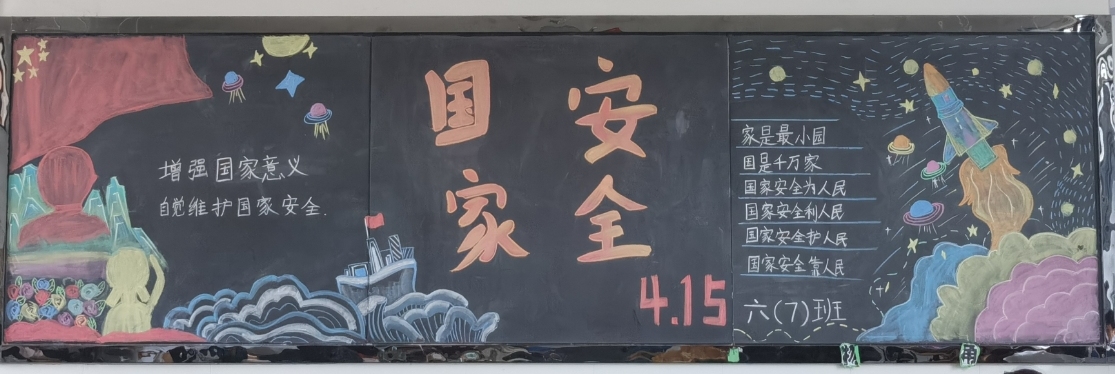 增强国家意义
自觉维护国家安全.
国家安全
4.15
家是最小园
国是千万家
国家安全为人民
国家安全利人民
国家安全护人民
国家安全靠人民
六(7)班